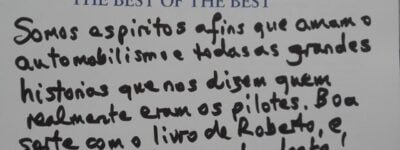 THE BEST OF THE BEST
Somos espiritos afins que amam o
automobilismo e todas as grandes
historias que nos dizem quem
realmente eram os pilotos. Boa
sorte com o livro de Roberto, e,